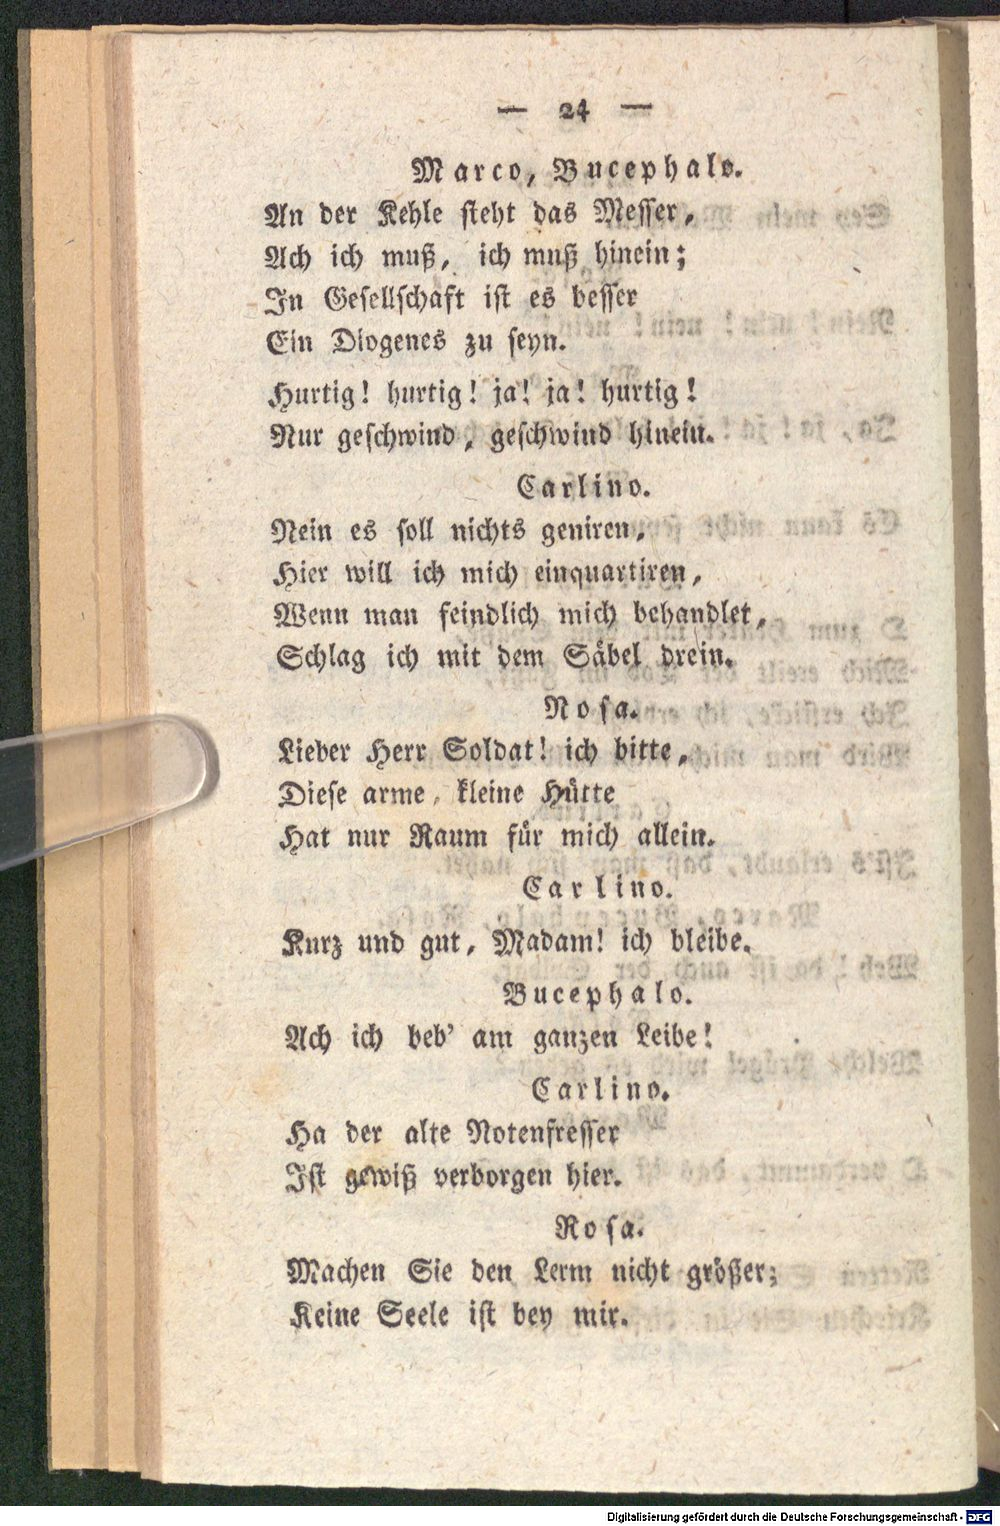 — 24 —
Marco, Bucephalo.
An der Kehle steht das Messer,
Ach ich muß, ich muß hinein;
In Gesellschaft ist es besser
Ein Diogenes zu seyn.
Hurtig! hurtig! ja! ja! hurtig!
Nur geschwind, geschwind hinein.
Carlino.
Nein es soll nichts geniren,
Hier will ich mich einquartiren,
Wenn man feindlich mich behandlet,
Schlag ich mit dem Säbel drein.
Rosa.
Lieber Herr Soldat! ich bitte,
Diese arme, kleine Hütte
Hat nur Raum für mich allein.
Carlino.
Kurz und gut, Madam! ich bleibe.
Bucephalo.
Ach ich beb' am ganzen Leibe!
Carlino.
Ha der alte Notenfresser
Ist gewiß verborgen hier.
Rosa.
Machen Sie den Lerm nicht größer;
Keine Seele ist bey mir.
Digitalisierung gefördert durch die Deutsche Forschungsgemeinschaft - DFG